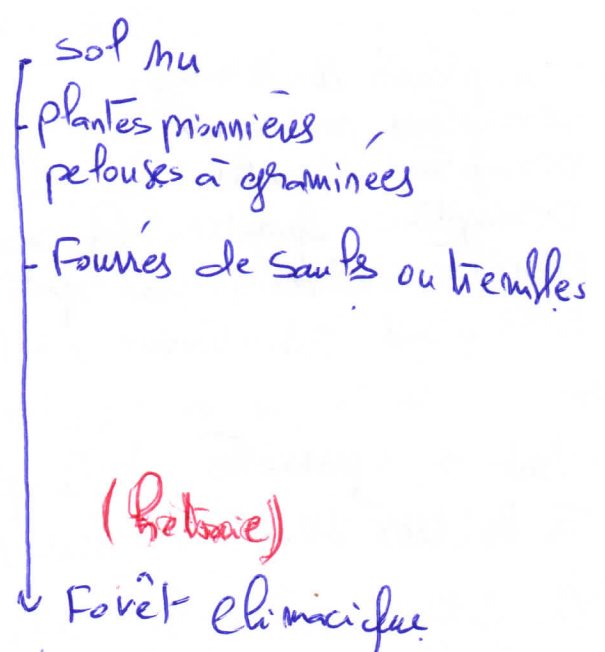 sol nu
- plantes pionnières
pelouses à graminées
- Fourrés de Sauls ou trembles
(hêtraie)
Forêt climacique